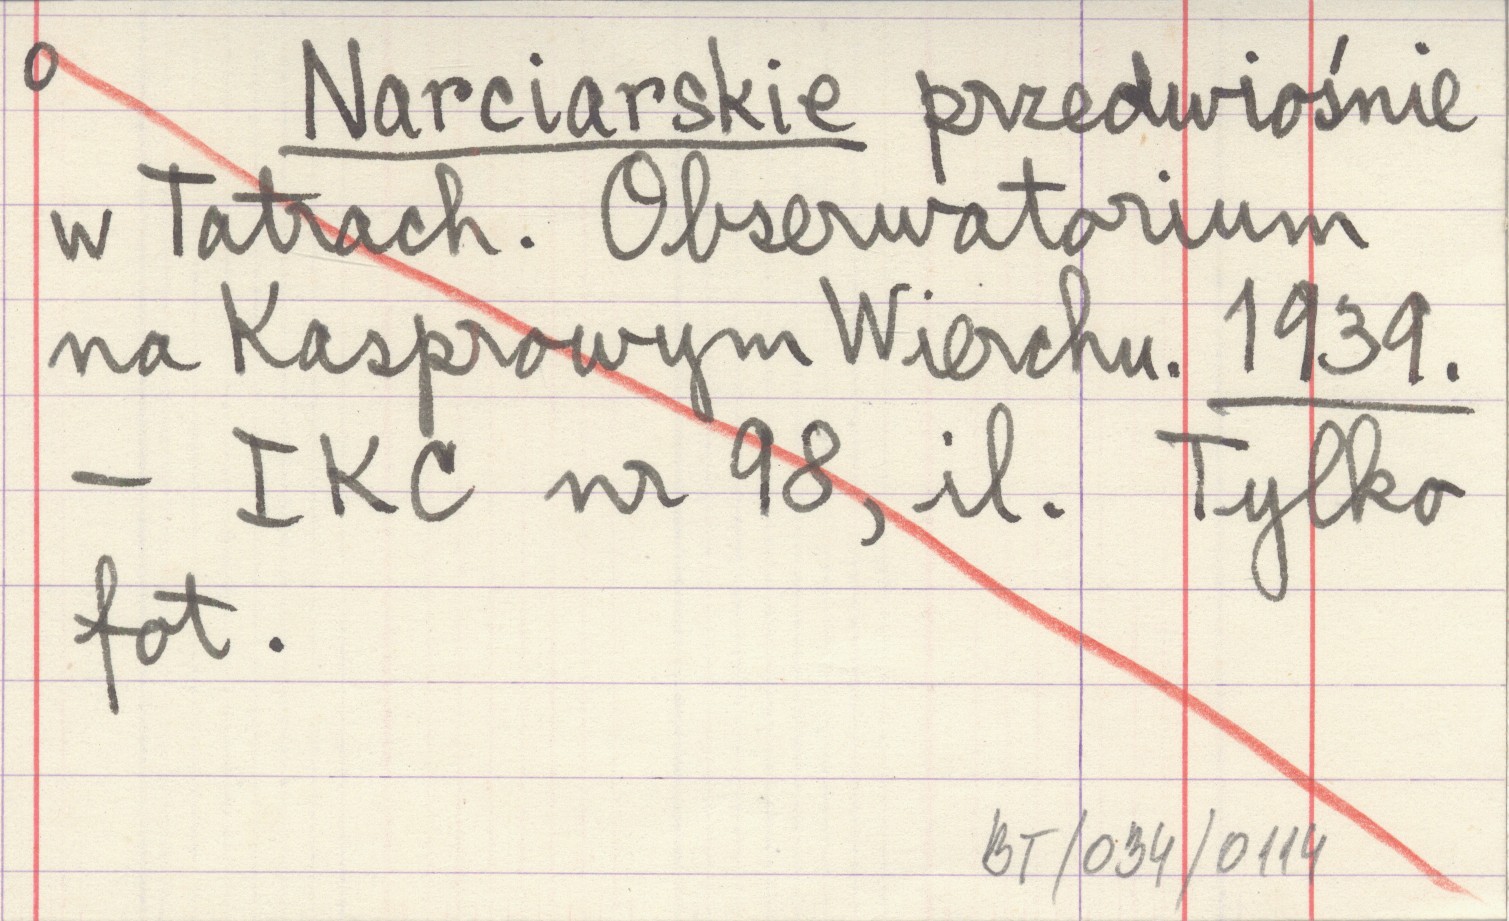 o Narciarskie przedwiośnie
w Tatrach. Obserwatorium
na Kasprowym Wierchu. 1939.
- IKC nr 98, il. Tylko
fot.
BT/034/0114